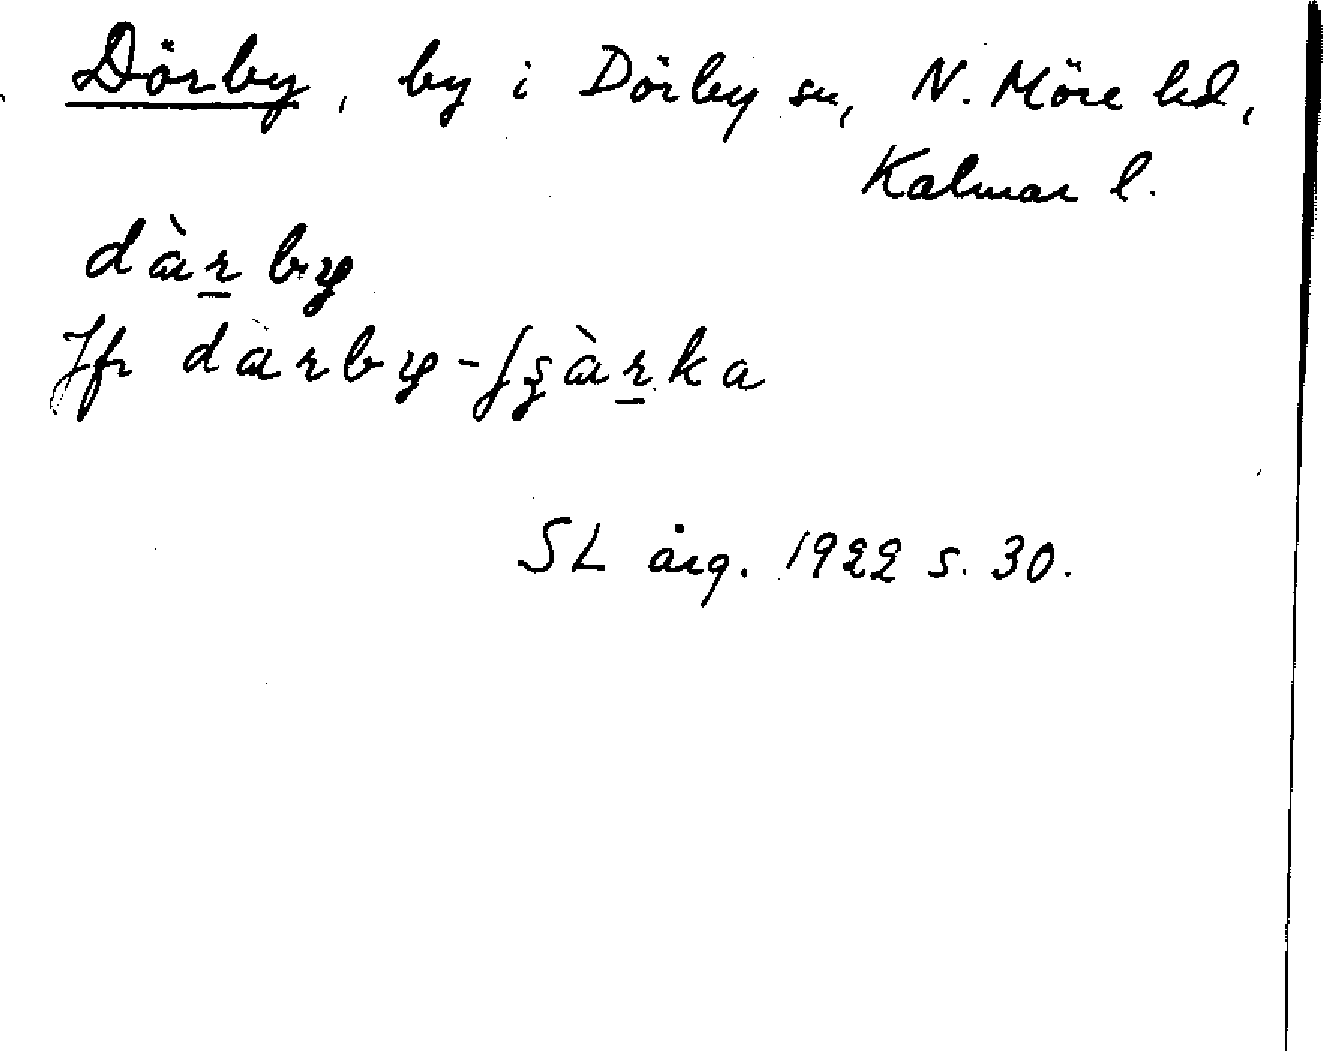 Dörby, by i Dörby sn, N. Möre hd,
Kalmar l.
dàr̠by
Jfr dàrby-ʃʂàr̠ka
SL årg. 1922 s. 30.